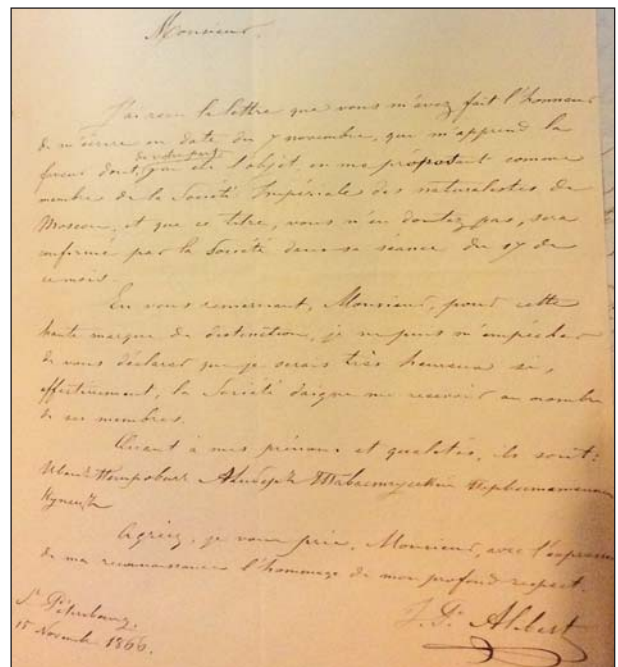 Monsieur,
J'ai reçu la lettre que vous m'avez fait l'honneur
de m'écrire en date du 7 novembre, qui m'apprend la
faveur dont, de votre part j'ai été l'objet, en me proposant comme
membre de la Société Impériale des naturalistes de
Moscou, et que ce titre, vous n'en doutez pas, sera
confirmé par la Société dans sa séance du 17 de
ce mois.
En vous remerciant, Monsieur, pour cette
haute marque de distinction, je ne puis m'empêcher
de vous déclarer que je serais très heureux si,
effectivement, la Société daigne me recevoir au nombre
de ses membres.
Quant à mes prénoms et qualités, ils sont:
Иванъ Петровичъ Алиберъ Тавастгусский
Купецъ
Agréez, je vous prie, Monsieur, avec l'expression
de ma reconnaissance l'hommage de mon profond respect.
St Pétersbourg.
15 Novembre 1866.
J. P. Alibert